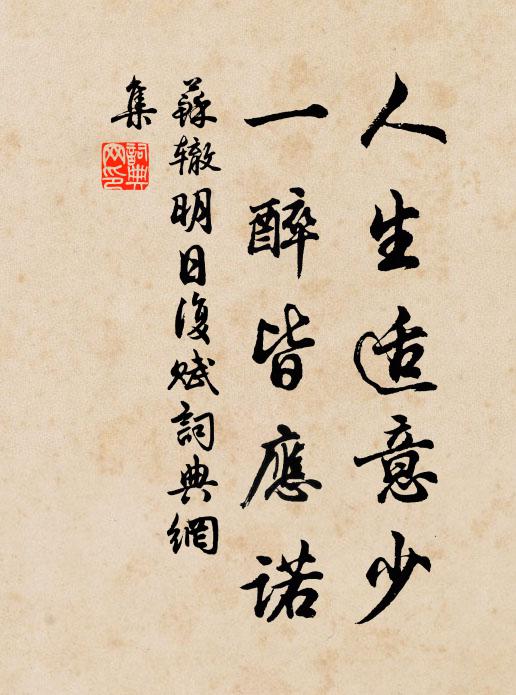 人生适意少
一醉皆應諾
蘇辙明日復赋詞典網
集
詞典
网印